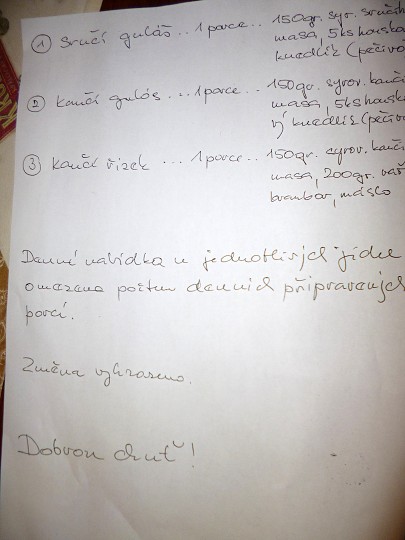 ① Srnčí guláš .. 1 porce .. 150gr. syr. srnčíh
masa, 5ks houska
knedlík (pečivo
② Kančí guláš ... 1 porce .. 150gr. syrov. kančí
masa, 5ks housk
vý knedlík (pečivo
③ Kančí řízek ... 1 porce .. 150gr. syrov. kančí
masa, 200gr. vař
brambor, máslo
Denní nabídka u jednotlivých jídel
omezena počtem denních připravených
porcí.
Změna vyhrazena.
Dobrou chuť!